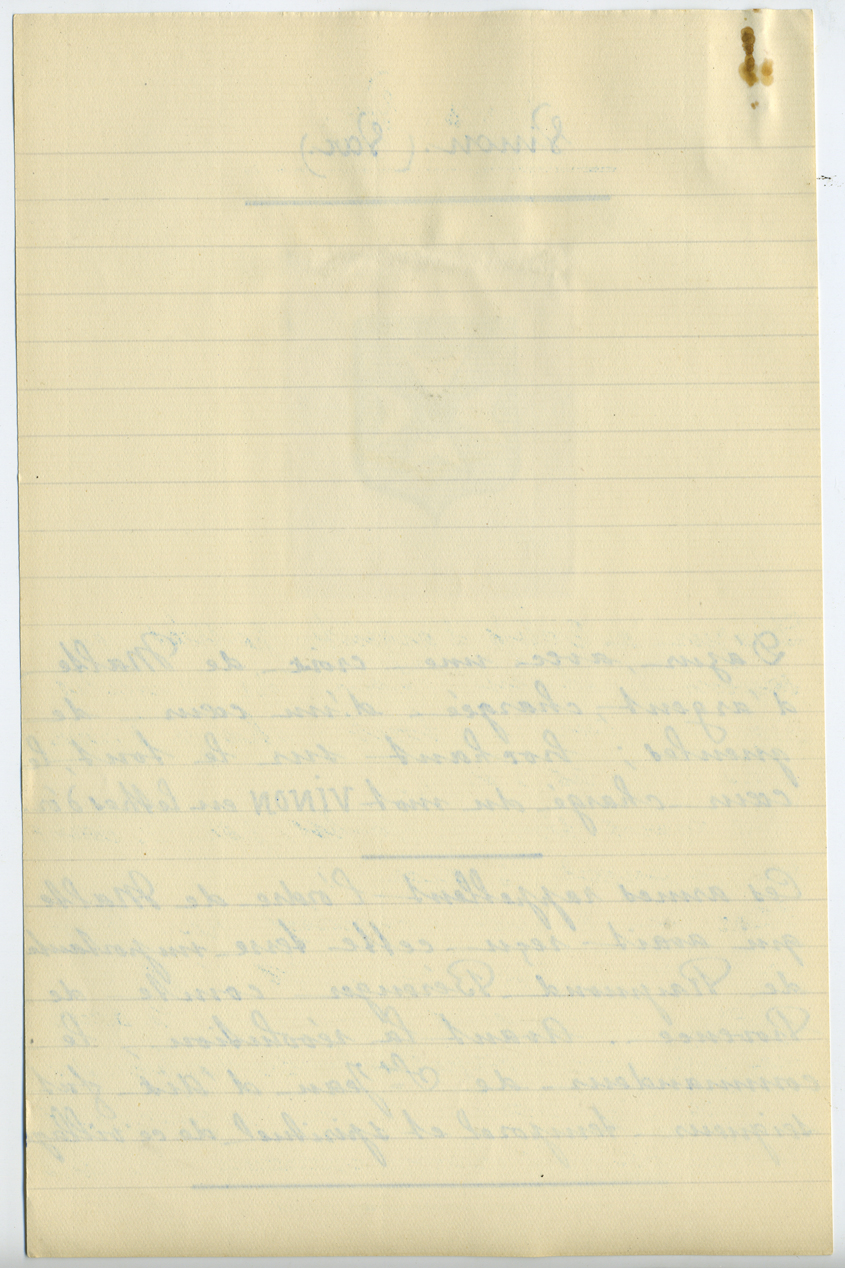 Vinon. (Var)
D'azur, avec une croix de Malte
d'argent, chargée d'un cœur de
gueules ; brochant sur le tout, le
cœur chargé du mot VINON en lettres d'or
Ces armes rappellent l'ordre de Malte
qui avait reçu cette terre importante
de Raymond Bérenger comte de
Provence. Avant la révolution ; le
commandeur de St Jean d'Aix était
seigneur temporel et spirituel de ce village